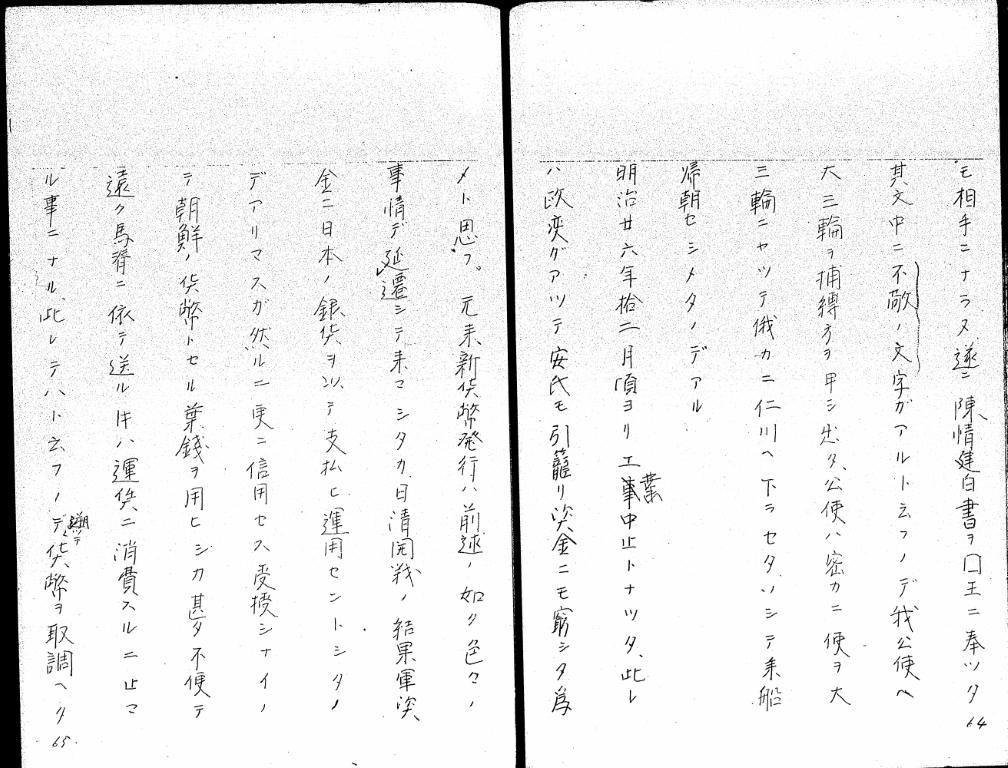 モ相手ニナラヌ遂ニ陳情建白書ヲ囗王ニ奉ツタ
其文中ニ不敬ノ文字ガアルト云フノデ我公使ヘ
大三輪ヲ捕縛方ヲ申シ出タ、公使ハ密カニ使ヲ大
三輪ニヤツテ俄カニ仁川ヘ下ラセタソシテ乗船
帰朝セシメタノデアル
明治廿六年拾二月頃ヨリ工事中止トナツタ、此レ
業
ハ政変ガアツテ安氏モ引籠リ資金ニモ窮シタ為
64
メト思フ。元来新貨幣発行ハ前述ノ如ク色々ノ
事情デ延遷シテ来マシタカ日清開戦ノ結果軍資
金ニ日本ノ銀貨ヲ以テ支払ヒ運用セントシタノ
デアリマスガ然ルニ更ニ信用セス受授シナイノ
テ朝鮮ノ貨幣トセル葉銭ヲ用ヒシカ甚タ不便テ
遠ク馬脊ニ依テ送ル件ハ運賃ニ消費スルニ止マ
ル事ニナル、此レテハト云フノデ貨幣ヲ取調ヘタ
65